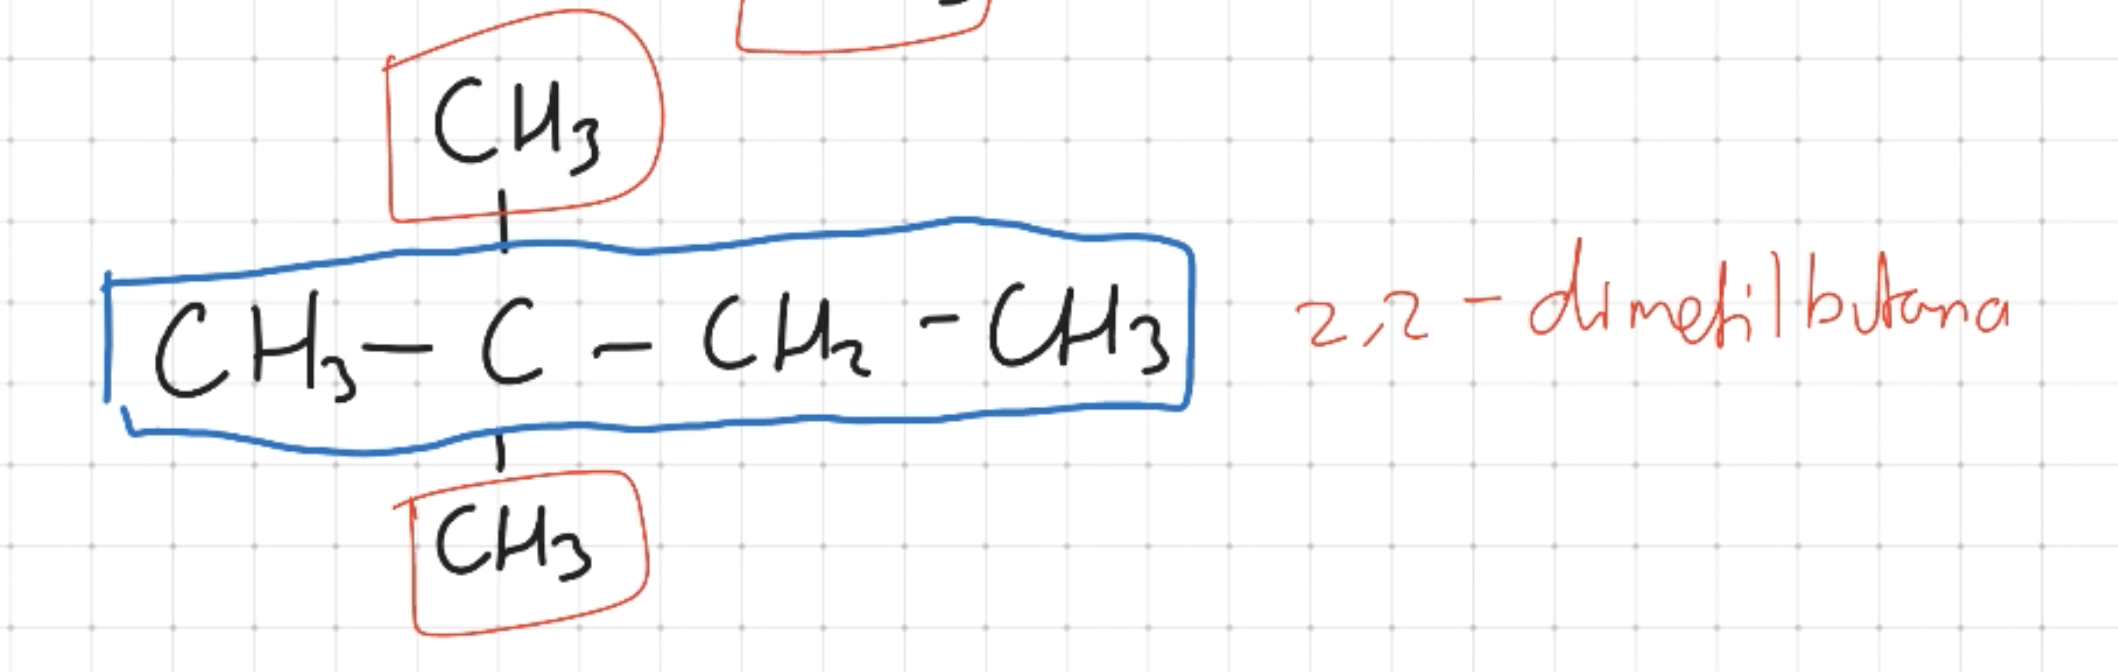 CH3
CH3 - C - CH2 - CH3 2,2 - dimetilbutana
CH3